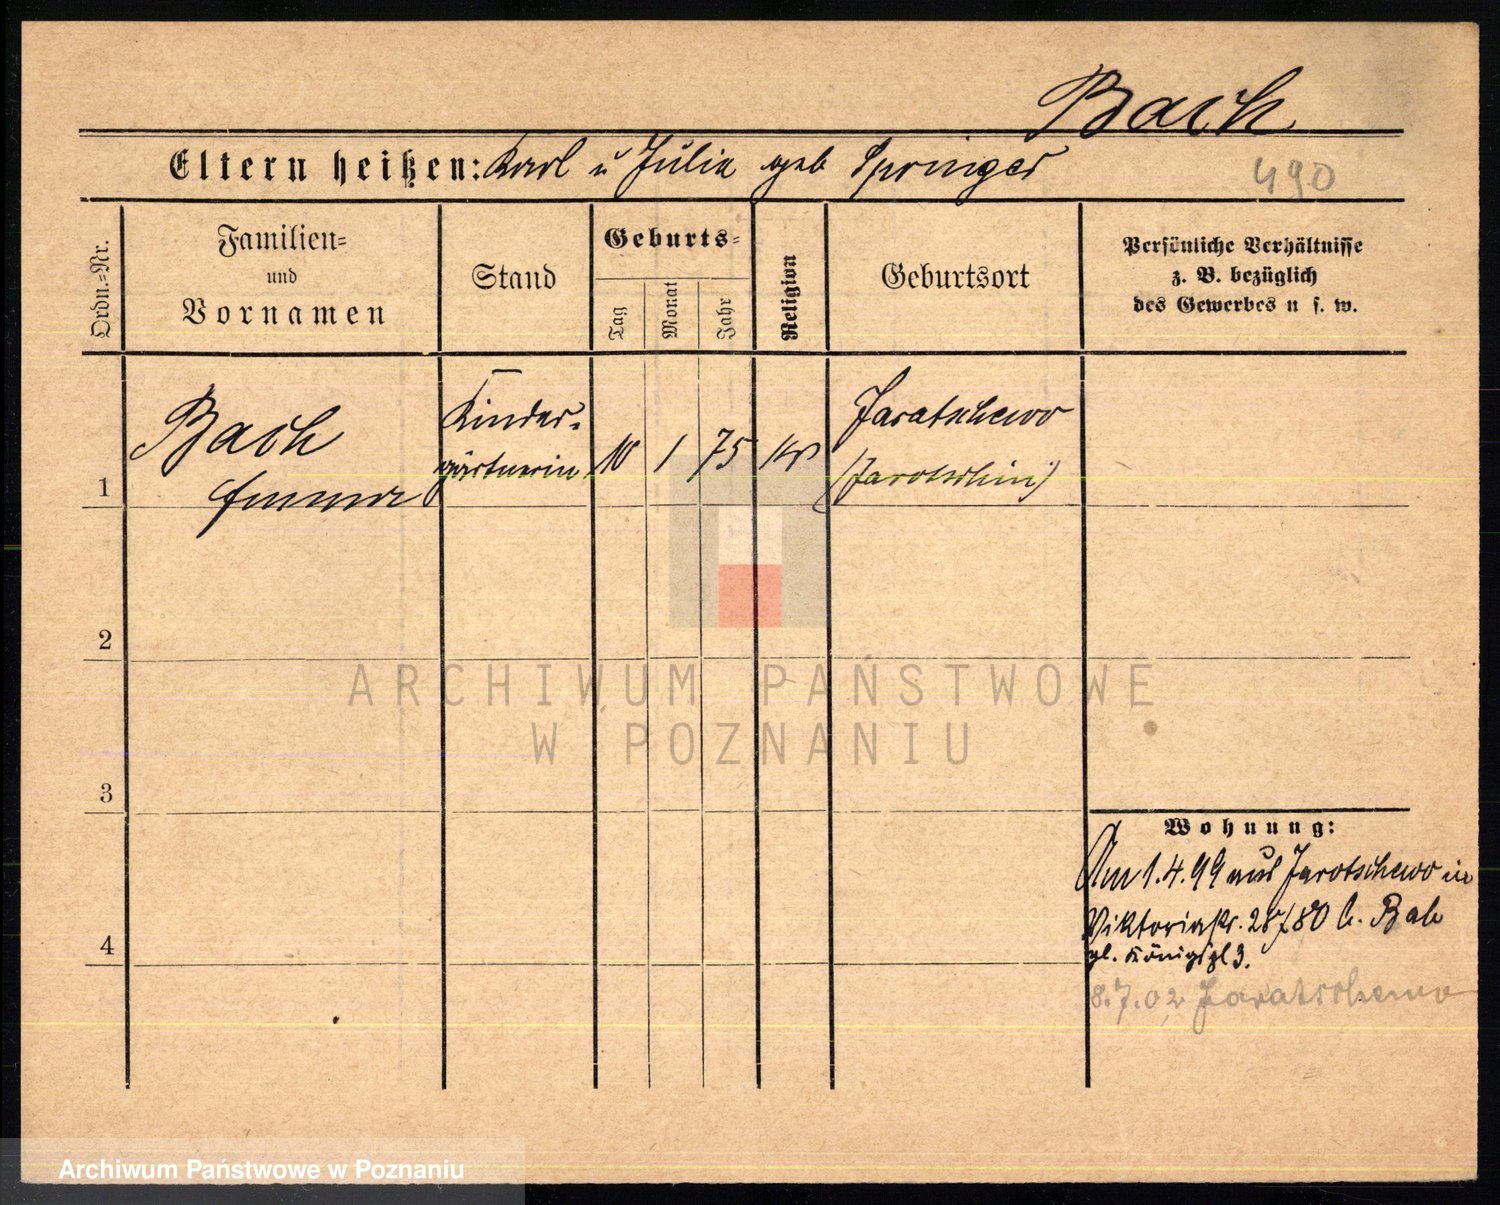 Bach
Eltern heißen: Karl u Julie geb Springer
490
Ordn.=Nr.
Familien=
und
Vornamen
Stand
Geburts=
Tag
Monat
Jahr
Religion
Geburtsort
Persönliche Verhältnisse
z. B. bezüglich
des Gewerbes u s. w.
1
Bach
Emma
Kinder-
gärtnerin
10
1
75
Jaratschewo
(Jarotschin)
2
ARCHIWUM PAŃSTWOWE
W POZNANIU
3
Wohnung:
Am 1.4.99 aus Jarotschewo in
Viktoriastr. 28/80 b. Bab
gl. Königspl 3.
4
8.7.02 Jaratschewo
Archiwum Państwowe w Poznaniu